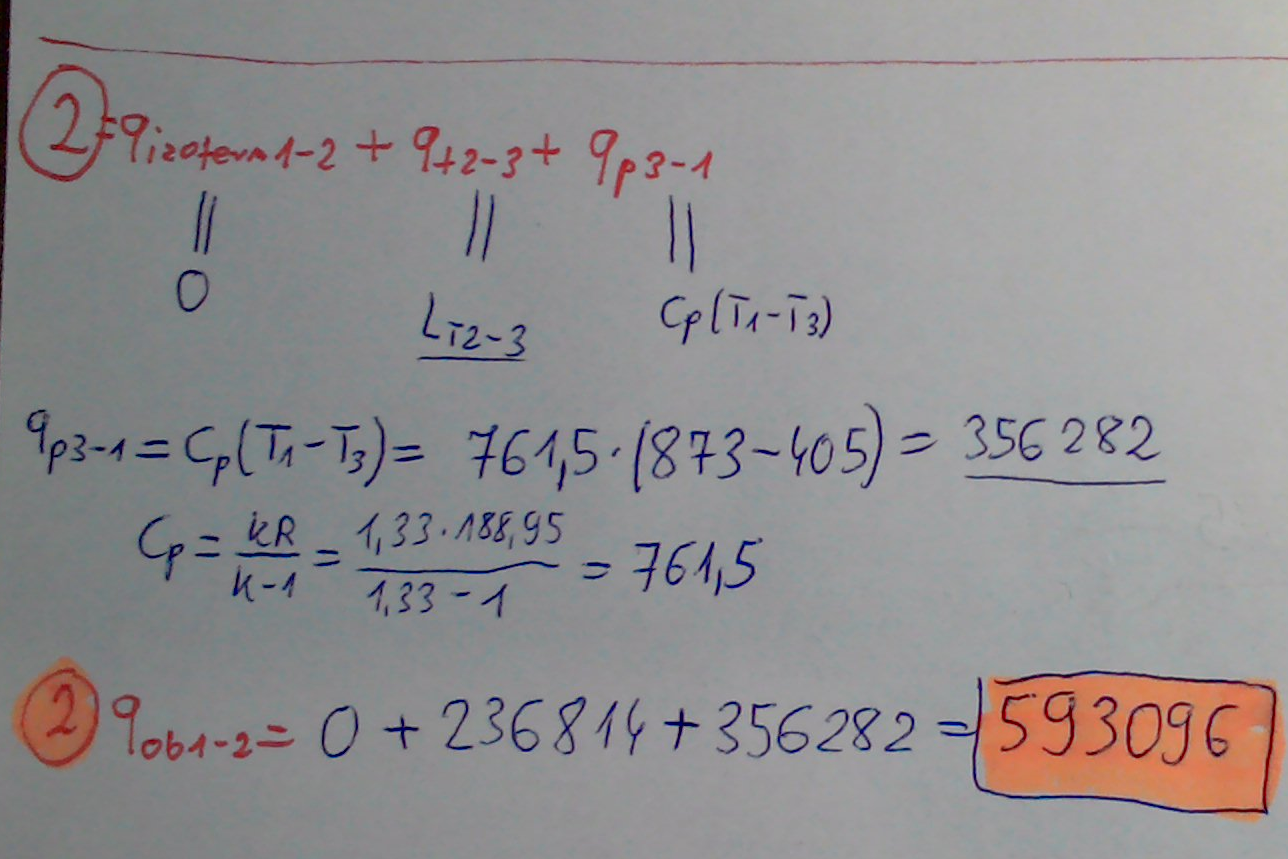 2 = qizoterm1-2 + qt2-3 + qp3-1
|| || ||
0 LT2-3 Cp(T1-T3)
qp3-1 = Cp(T1-T3) = 761,5·(873-405) = 356282
Cp = kR/k-1 = 1,33·188,95/1,33-1 = 761,5
2 qob1-2 = 0 + 236814 + 356282 = 593096